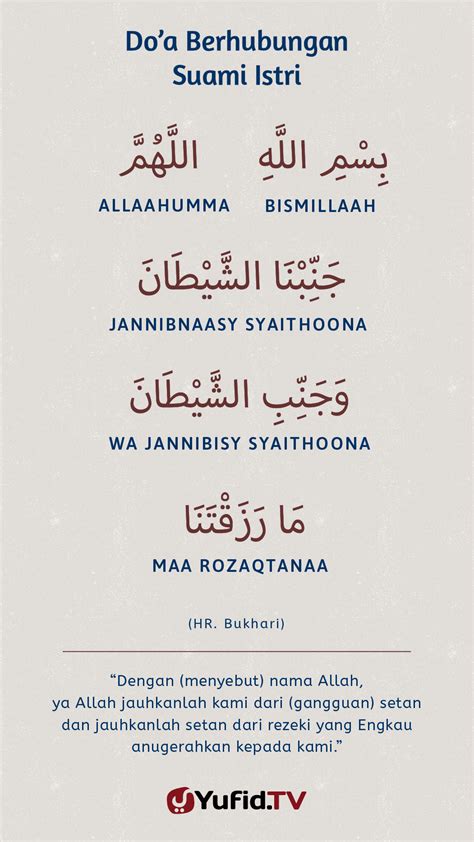 Do'a Berhubungan
Suami Istri
بِسْمِ اللَّهِ اللَّهُمَّ
ALLAAHUMMA BISMILLAAH
جَنِّبْنَا الشَّيْطَانَ
JANNIBNAASY SYAITHOONA
وَجَنِّبِ الشَّيْطَانَ
WA JANNIBISY SYAITHOONA
مَا رَزَقْتَنَا
MAA ROZAQTANAA
(HR. Bukhari)
“Dengan (menyebut) nama Allah,
ya Allah jauhkanlah kami dari (gangguan) setan
dan jauhkanlah setan dari rezeki yang Engkau
anugerahkan kepada kami.”
Yufid.TV